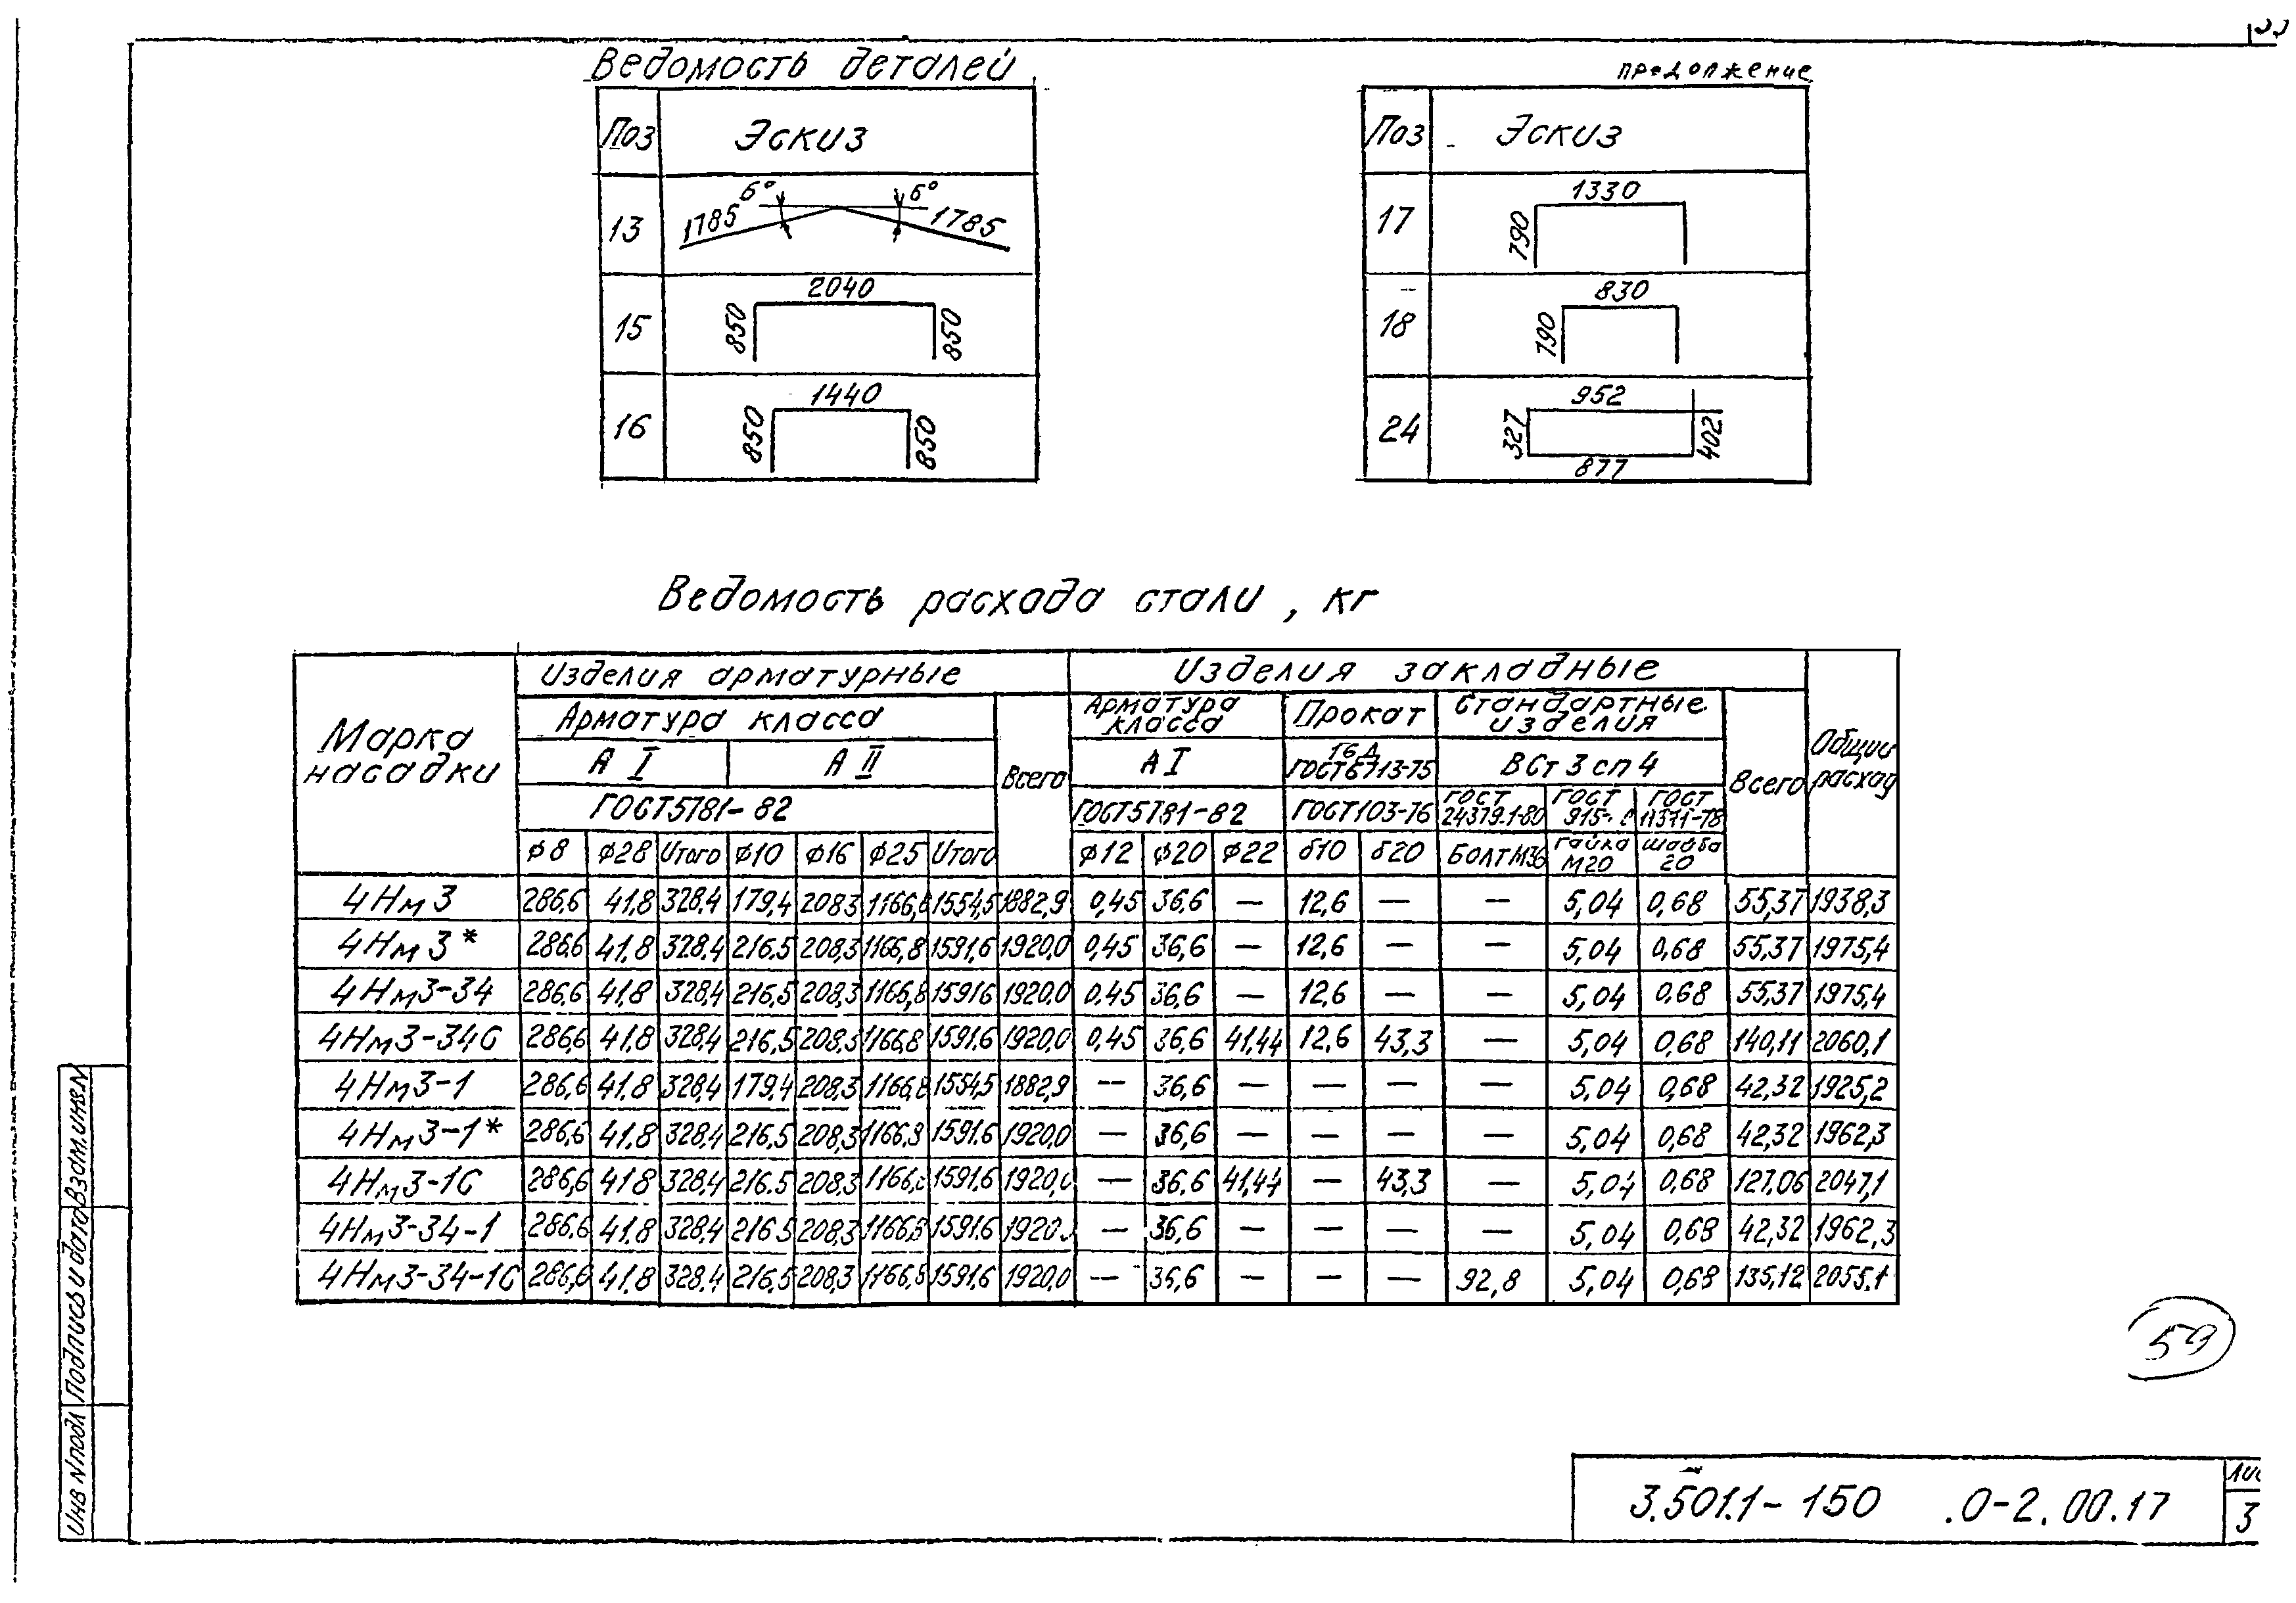 Ведомость деталей
Поз Эскиз
13 1785 6° 6° 1785
15 850 2040 850
16 850 1440 850
продолжение
Поз Эскиз
17 790 1330
18 790 830
24 327 952 877 402
Ведомость расхода стали, кг
Марка насадки Изделия арматурные Изделия закладные Общий расход
Арматура класса Всего Арматура класса Прокат Стандартные изделия Всего
А I А II А I 16Д ГОСТ6713-75 ВСт3сп4
ГОСТ5781-82 ГОСТ5781-82 ГОСТ103-76 ГОСТ 24379.1-80 ГОСТ ГОСТ 11371-78
ф8 ф28 Итого ф10 ф16 ф25 Итого ф12 ф20 ф22 δ10 δ20 БОЛТ М36 гайка М20 шайба 20
4Нм3 286,6 41,8 328,4 179,4 208,3 1166,8 1554,5 1882,9 0,45 36,6 — 12,6 — — 5,04 0,68 55,37 1938,3
4Нм3* 286,6 41.8 328,4 216.5 208,3 1166,8 1591,6 1920,0 0,45 36,6 — 12,6 — — 5,04 0,68 55,37 1975,4
4Нм3-34 286,6 41,8 328,4 216,5 208,3 1166,8 1591,6 1920,0 0,45 36,6 — 12,6 — — 5,04 0,68 55,37 1975,4
4Нм3-34С 286,6 41.8 328,4 216,5 208,3 1166,8 1591,6 1920,0 0,45 36,6 41,44 12,6 43,3 — 5,04 0,68 140,11 2060,1
4Нм3-1 286,6 41.8 328,4 179,4 208,3 1166,8 1554,5 1882,9 — 36,6 — — — — 5,04 0,68 42,32 1925,2
4Нм3-1* 286,6 41.8 328,4 216,5 208,3 1166,8 1591,6 1920,0 — 36,6 — — — — 5,04 0,68 42,32 1962,3
4Нм3-1С 286,6 41,8 328,4 216.5 208,3 1166,8 1591,6 1920,0 — 36,6 41,44 — 43,3 — 5,04 0,68 127,06 2047,1
4Нм3-34-1 286,6 41.8 328,4 216.5 208,3 1166,8 1591,6 1920,0 — 36,6 — — — — 5,04 0,68 42,32 1962,3
4Нм3-34-1С 286,6 41.8 328.4 216,5 208,3 1166,8 1591,6 1920,0 — 36,6 — — — 92,8 5,04 0,68 135,12 2055.1
59
Инв N подл Подпись и дата Взам.инв.N
3.501.1-150 .0-2.00.17
3